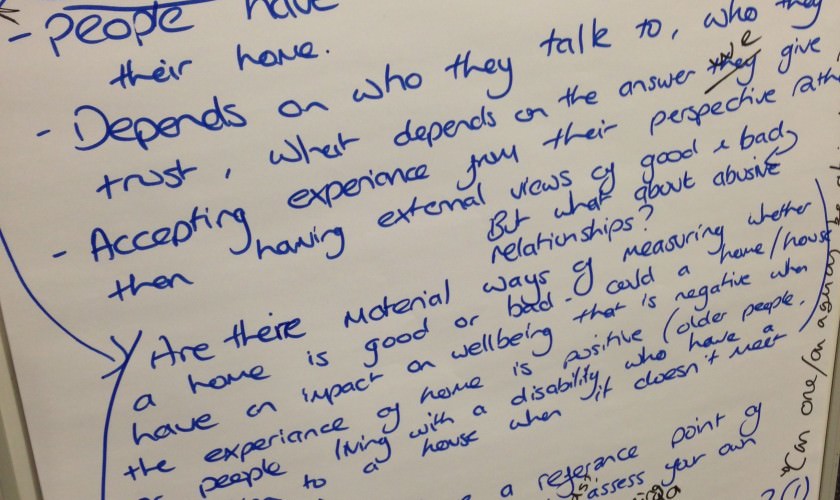 - People have
their home.
- Depends on who they talk to, who they
trust, what depends on the answer they we give
- Accepting experience from their perspective rath
then having external views of good & bad
But what about abusive
relationships?
Are there material ways of measuring whether
a home is good or bad - could a home/house
have an impact on wellbeing that is negative when
the experiance of home is positive (older people,
or people living with a disability who have a
to a house when it doesn't meet
a referance point of
assess your own
Can one/an